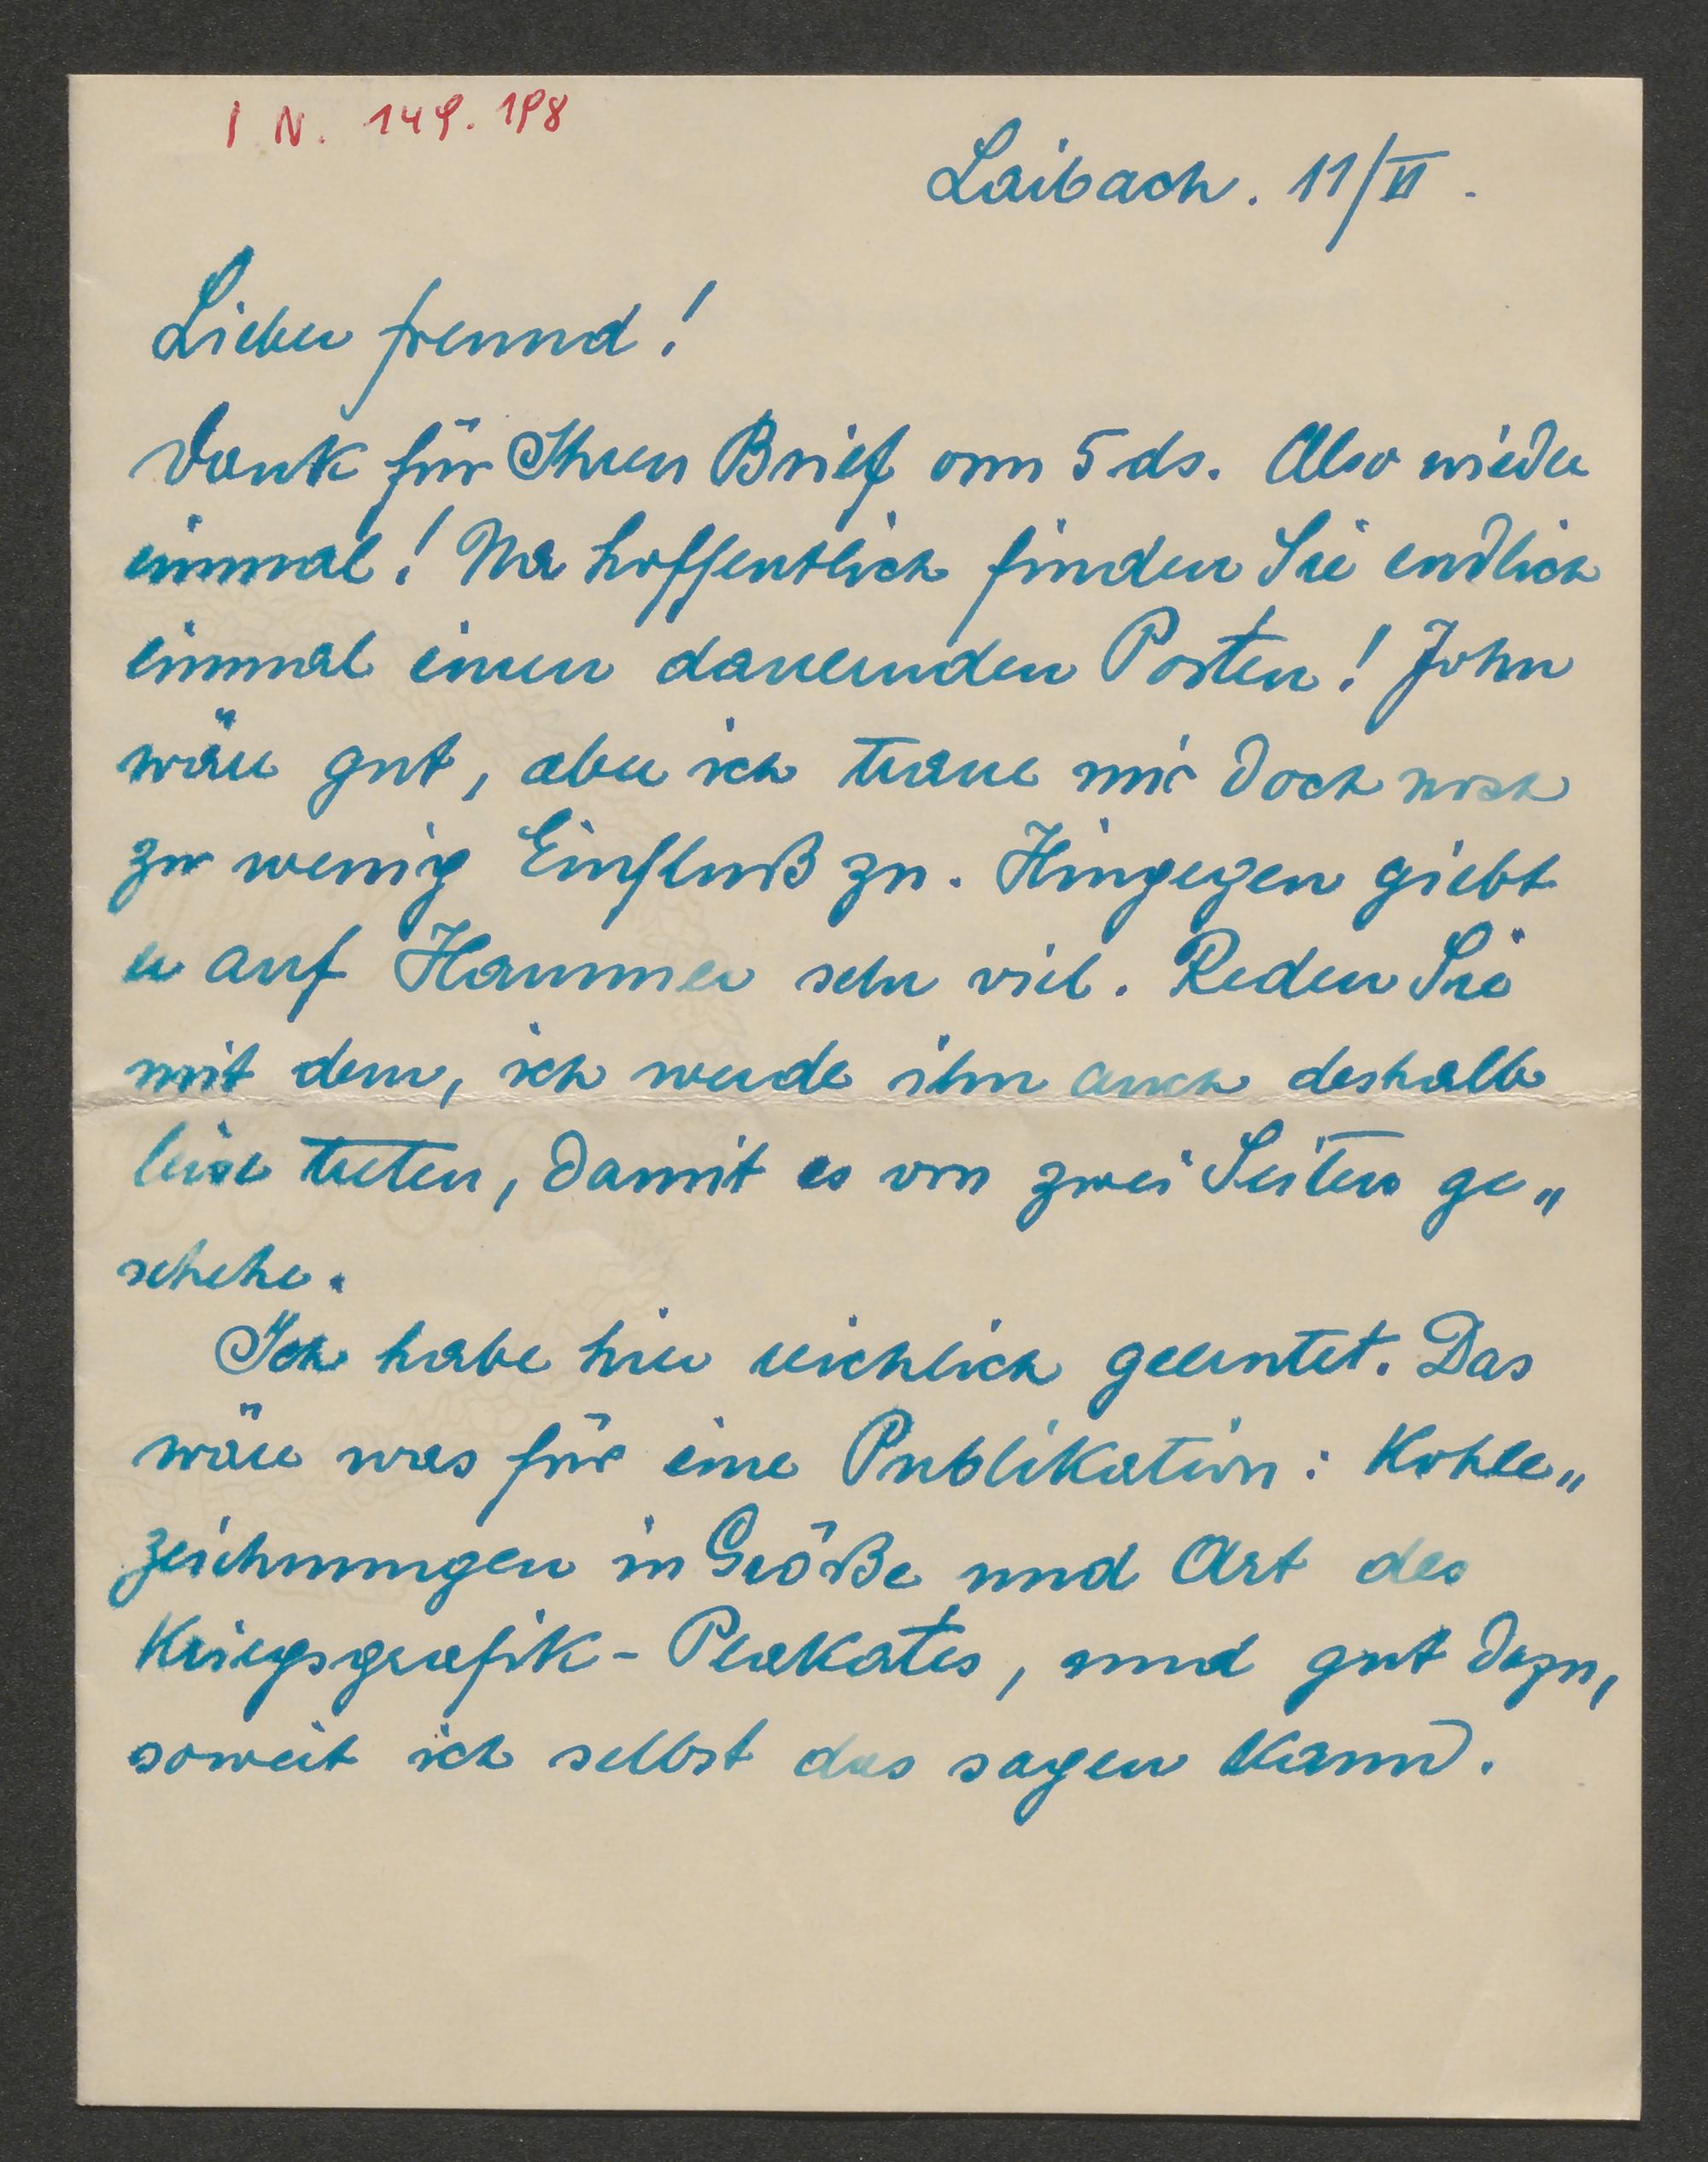 I N. 149.198
Laibach. 11/VI.
Lieber Freund!
Dank für Ihren Brief vom 5 ds. Also wieder
einmal! Na hoffentlich finden Sie endlich
einmal einen dauernden Posten! John
wäre gut, aber ich traue mir doch noch
zu wenig Einfluß zu. Hingegen giebt
er auf Hammer sehr viel. Reden Sie
mit dem, ich werde ihm auch deshalb
leise treten, damit es von zwei Seiten ge„
schehe.
Ich habe hier reichlich geerntet. Das
wäre was für eine Publikation: Kohle„
zeichnungen in Größe und Art des
Kriegsgrafik-Plakates, und gut dazu,
soweit ich selbst das sagen kann.